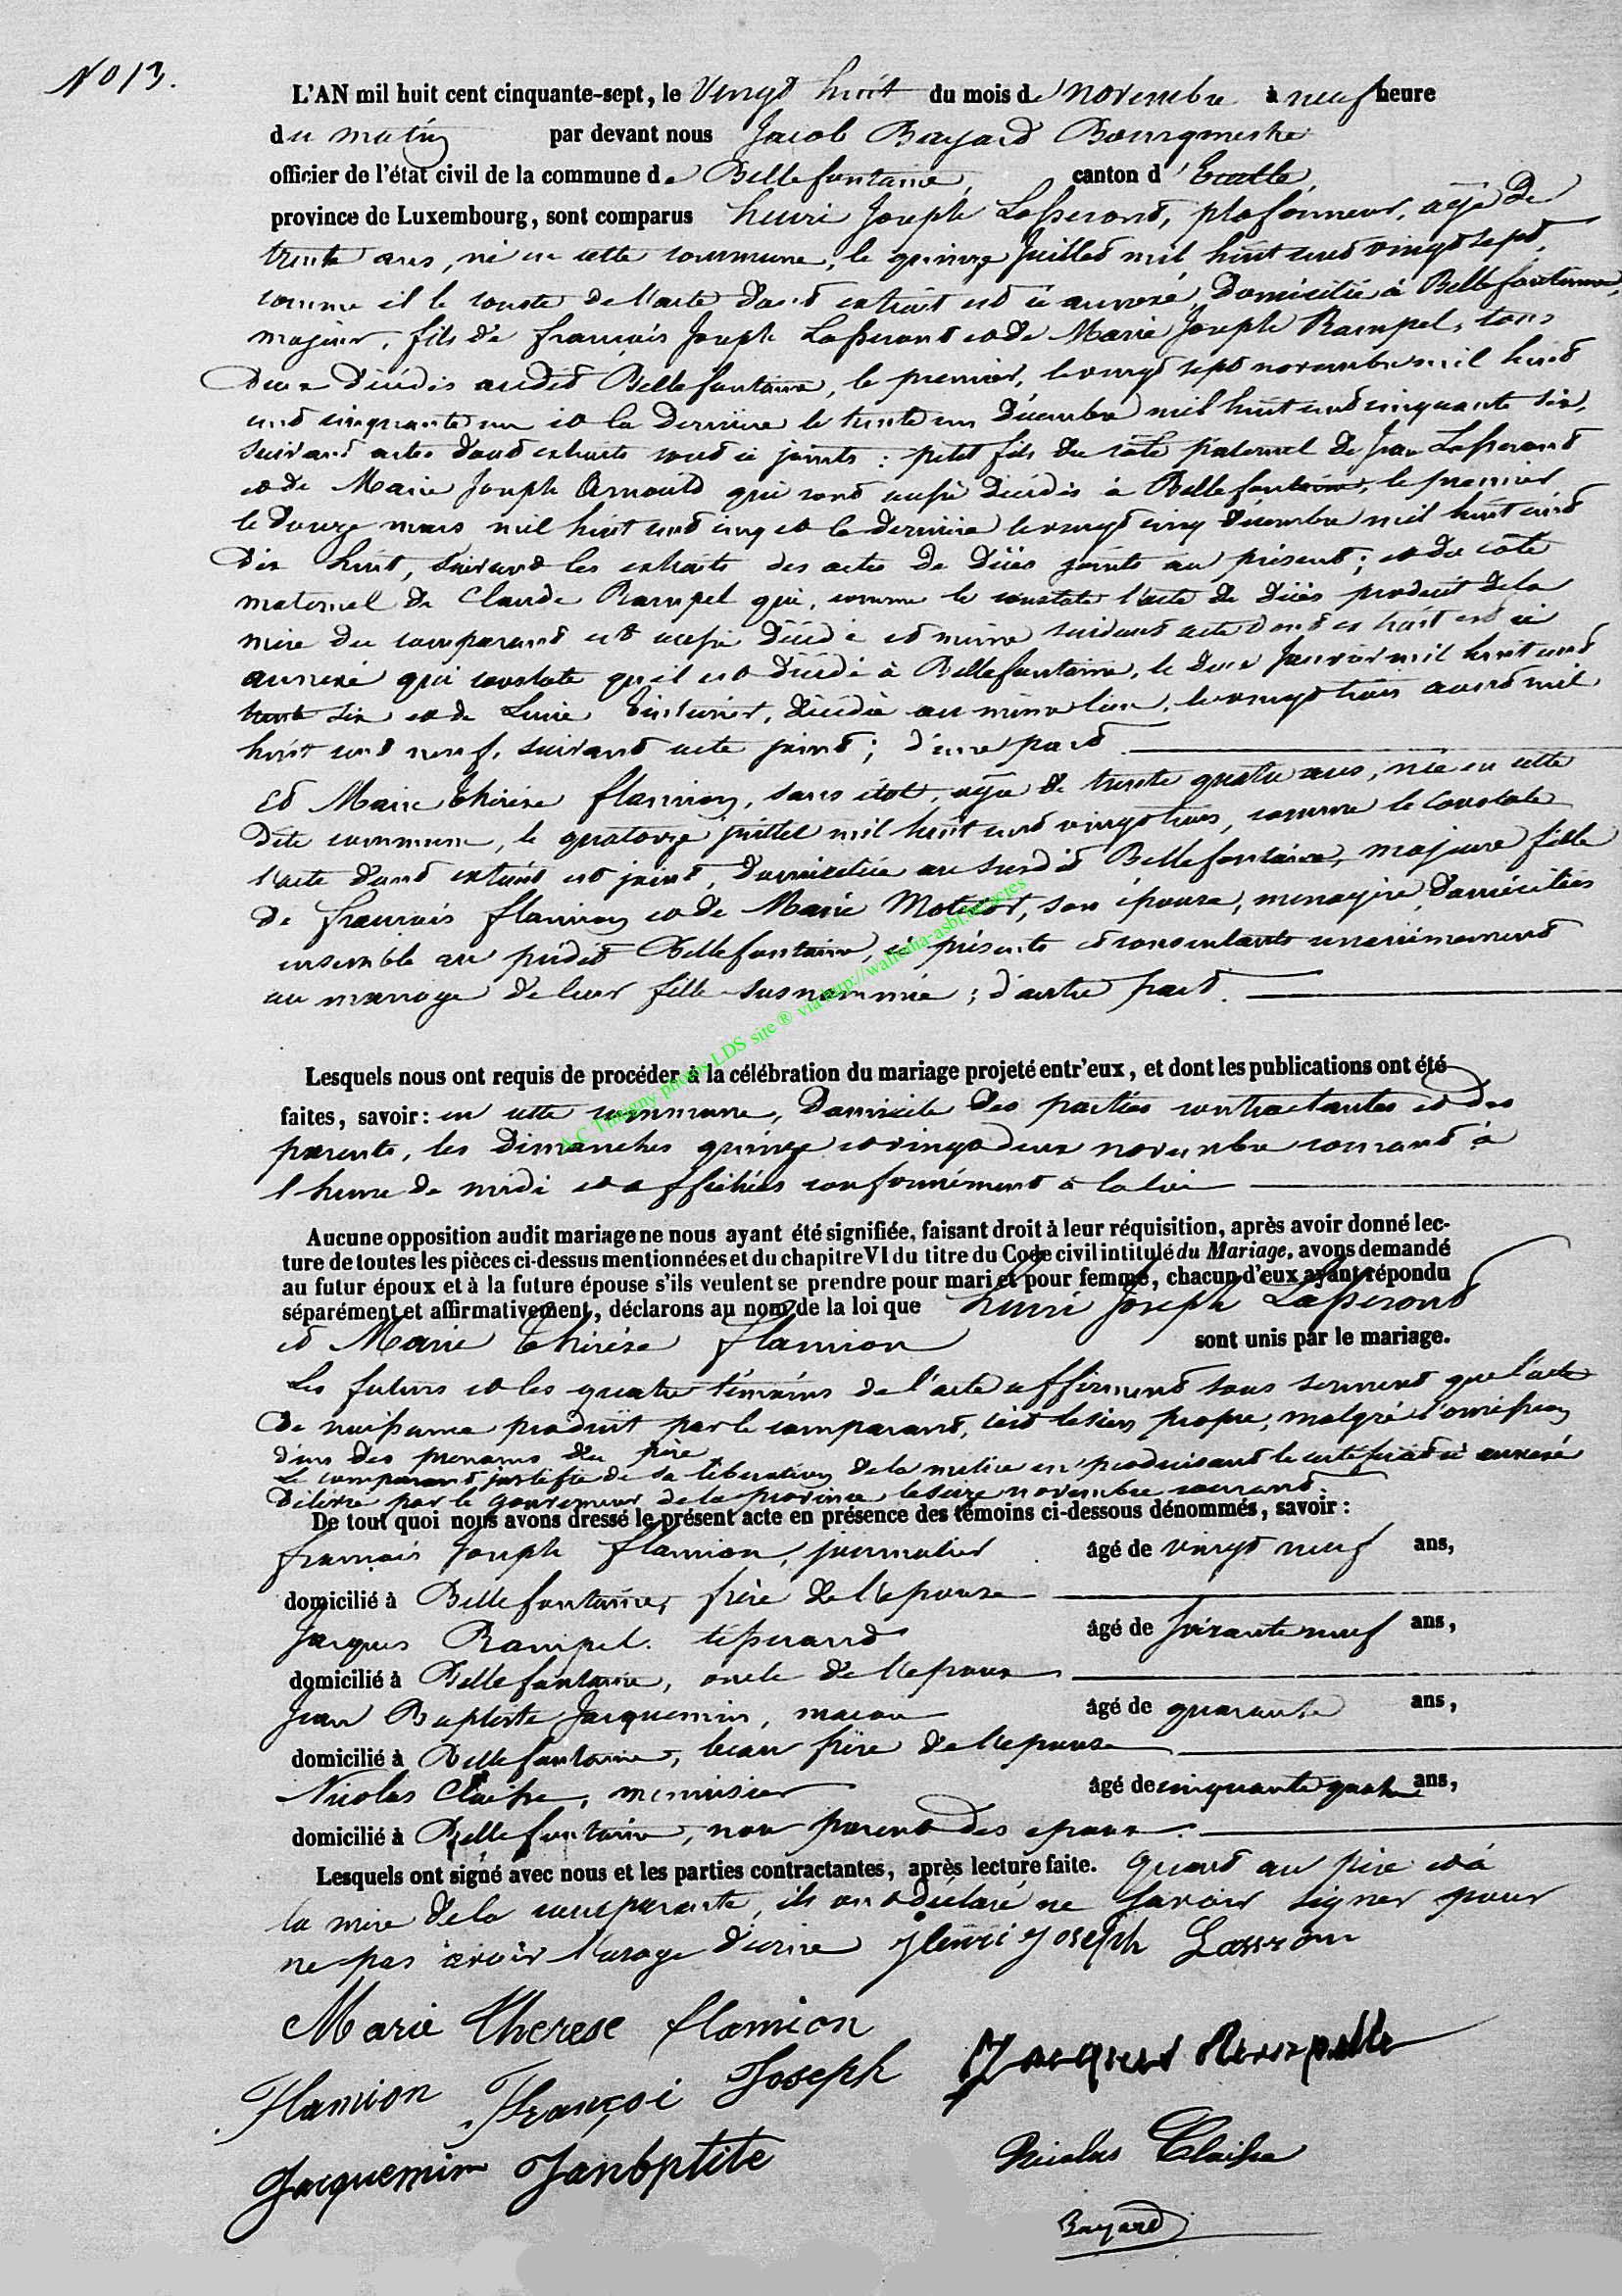 N° 13.
L'AN mil huit cent cinquante-sept, le vingt huit du mois de novembre à neuf heure
du matin par devant nous Jacob Bayard Bourgmestre
officier de l'état civil de la commune de Bellefontaine, canton d'Etalle,
province de Luxembourg, sont comparus henri Joseph Lasserond, plafonneur, agé de
trente ans, né en cette commune, le quinze Juillet mil huit cent vingt sept,
comme il le conste de l'acte dont extrait est ci annexé, Domicilié à Bellefontaine,
majeur, fils de françois Joseph Lasserond et de Marie Joseph Rampel, tous
deux décédés audit Bellefontaine, le premier, le vingt sept novembre mil huit
cent cinquante un et la dernière le trente un décembre mil huit cent cinquante six,
suivant actes dont extraits sont ci joints : petit fils du côté paternel de Jean Lasserond
et de Marie Joseph Arnould qui sont aussi décédés à Bellefontaine, le premier
le douze mars mil huit cent cinq et la dernière le vingt cinq décembre mil huit cent
dix huit, suivant les extraits des actes de décès joints au présent ; et du côté
maternel de Claude Rampel qui, comme le constate l'acte de décès produit de la
mère du comparant est aussi décédé et même suivant acte dont extrait est ci
annexé qui constate qu'il est décédé à Bellefontaine, le deux Janvier mil huit cent
trente six et de Lucie, décédée au même lieu, le vingt trois août mil
huit cent neuf, suivant acte joint ; d'une part
Et Marie thérèse flamion, sans état, agée de trente quatre ans, née en cette
dite commune, le quatorze juillet mil huit cent vingt trois, comme le constate
l'acte dont extrait est joint, domiciliée au susdit Bellefontaine, majeure fille
de françois flamion et de Marie, son épouse, menagère, domiciliés
ensemble au prédit Bellefontaine, ci présents et consentants unanimement
au mariage de leur fille susnommée ; d'autre part.
A.C Tintigny photos LDS site ® via http://wallonia-asbl.be/actes
Lesquels nous ont requis de procéder à la célébration du mariage projeté entr'eux, et dont les publications ont été
faites, savoir : en cette commune, domicile des parties contractantes et des
parents, les dimanches quinze et vingt deux novembre courant à
l'heure de midi et affichées conformément à la loi
Aucune opposition audit mariage ne nous ayant été signifiée, faisant droit à leur réquisition, après avoir donné lec-
ture de toutes les pièces ci-dessus mentionnées et du chapitre VI du titre du Code civil intitulé du Mariage, avons demandé
au futur époux et à la future épouse s'ils veulent se prendre pour mari et pour femme, chacun d'eux ayant répondu
séparément et affirmativement, déclarons au nom de la loi que henri Joseph Lasserond
et Marie thérèse flamion sont unis par le mariage.
Les futurs et les quatre témoins de l'acte affirment sous serment que l'acte
de naissance produit par le comparant, est le sien propre, malgré l'omission
d'un des prenoms du père
Le comparant justifie de sa libération de la milice en produisant le certificat ci annexé
délivré par le gouverneur de la province le seize novembre courant.
De tout quoi nous avons dressé le présent acte en présence des témoins ci-dessous dénommés, savoir :
françois Joseph flamion, journalier âgé de vingt neuf ans,
domicilié à Bellefontaine, frère de l'epouse
Jacques Rampel. tisserand âgé de soixante neuf ans,
domicilié à Bellefontaine, oncle de l'epoux
Jean Baptiste Jacquemin, macon âgé de quarante ans,
domicilié à Bellefontaine, beau frère de l'epouse
Nicolas Claisse, menuisier âgé de cinquante quatre ans,
domicilié à Bellefontaine, non parent des epoux.
Lesquels ont signé avec nous et les parties contractantes, après lecture faite. Quant au père et à
la mère de la comparante, ils ont déclaré ne savoir signer pour
ne pas avoir l'usage d'ecrire Henri Joseph
Marie therese flamion
Jacques Rampelle
Flamion François Joseph
Nicolas Claisse
Jacquemin Janbptite
Bayard